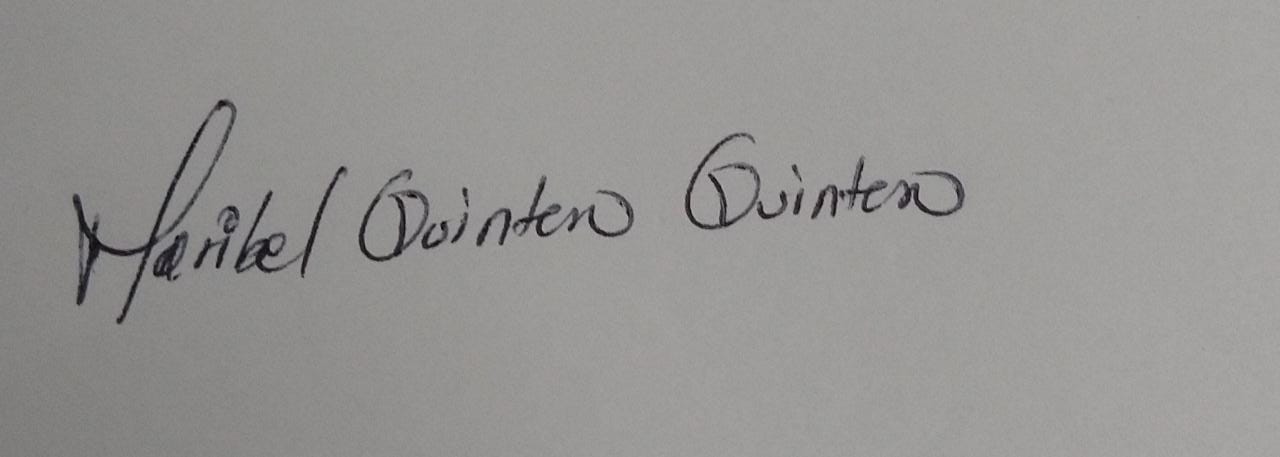 Maribel Quintero Quintero